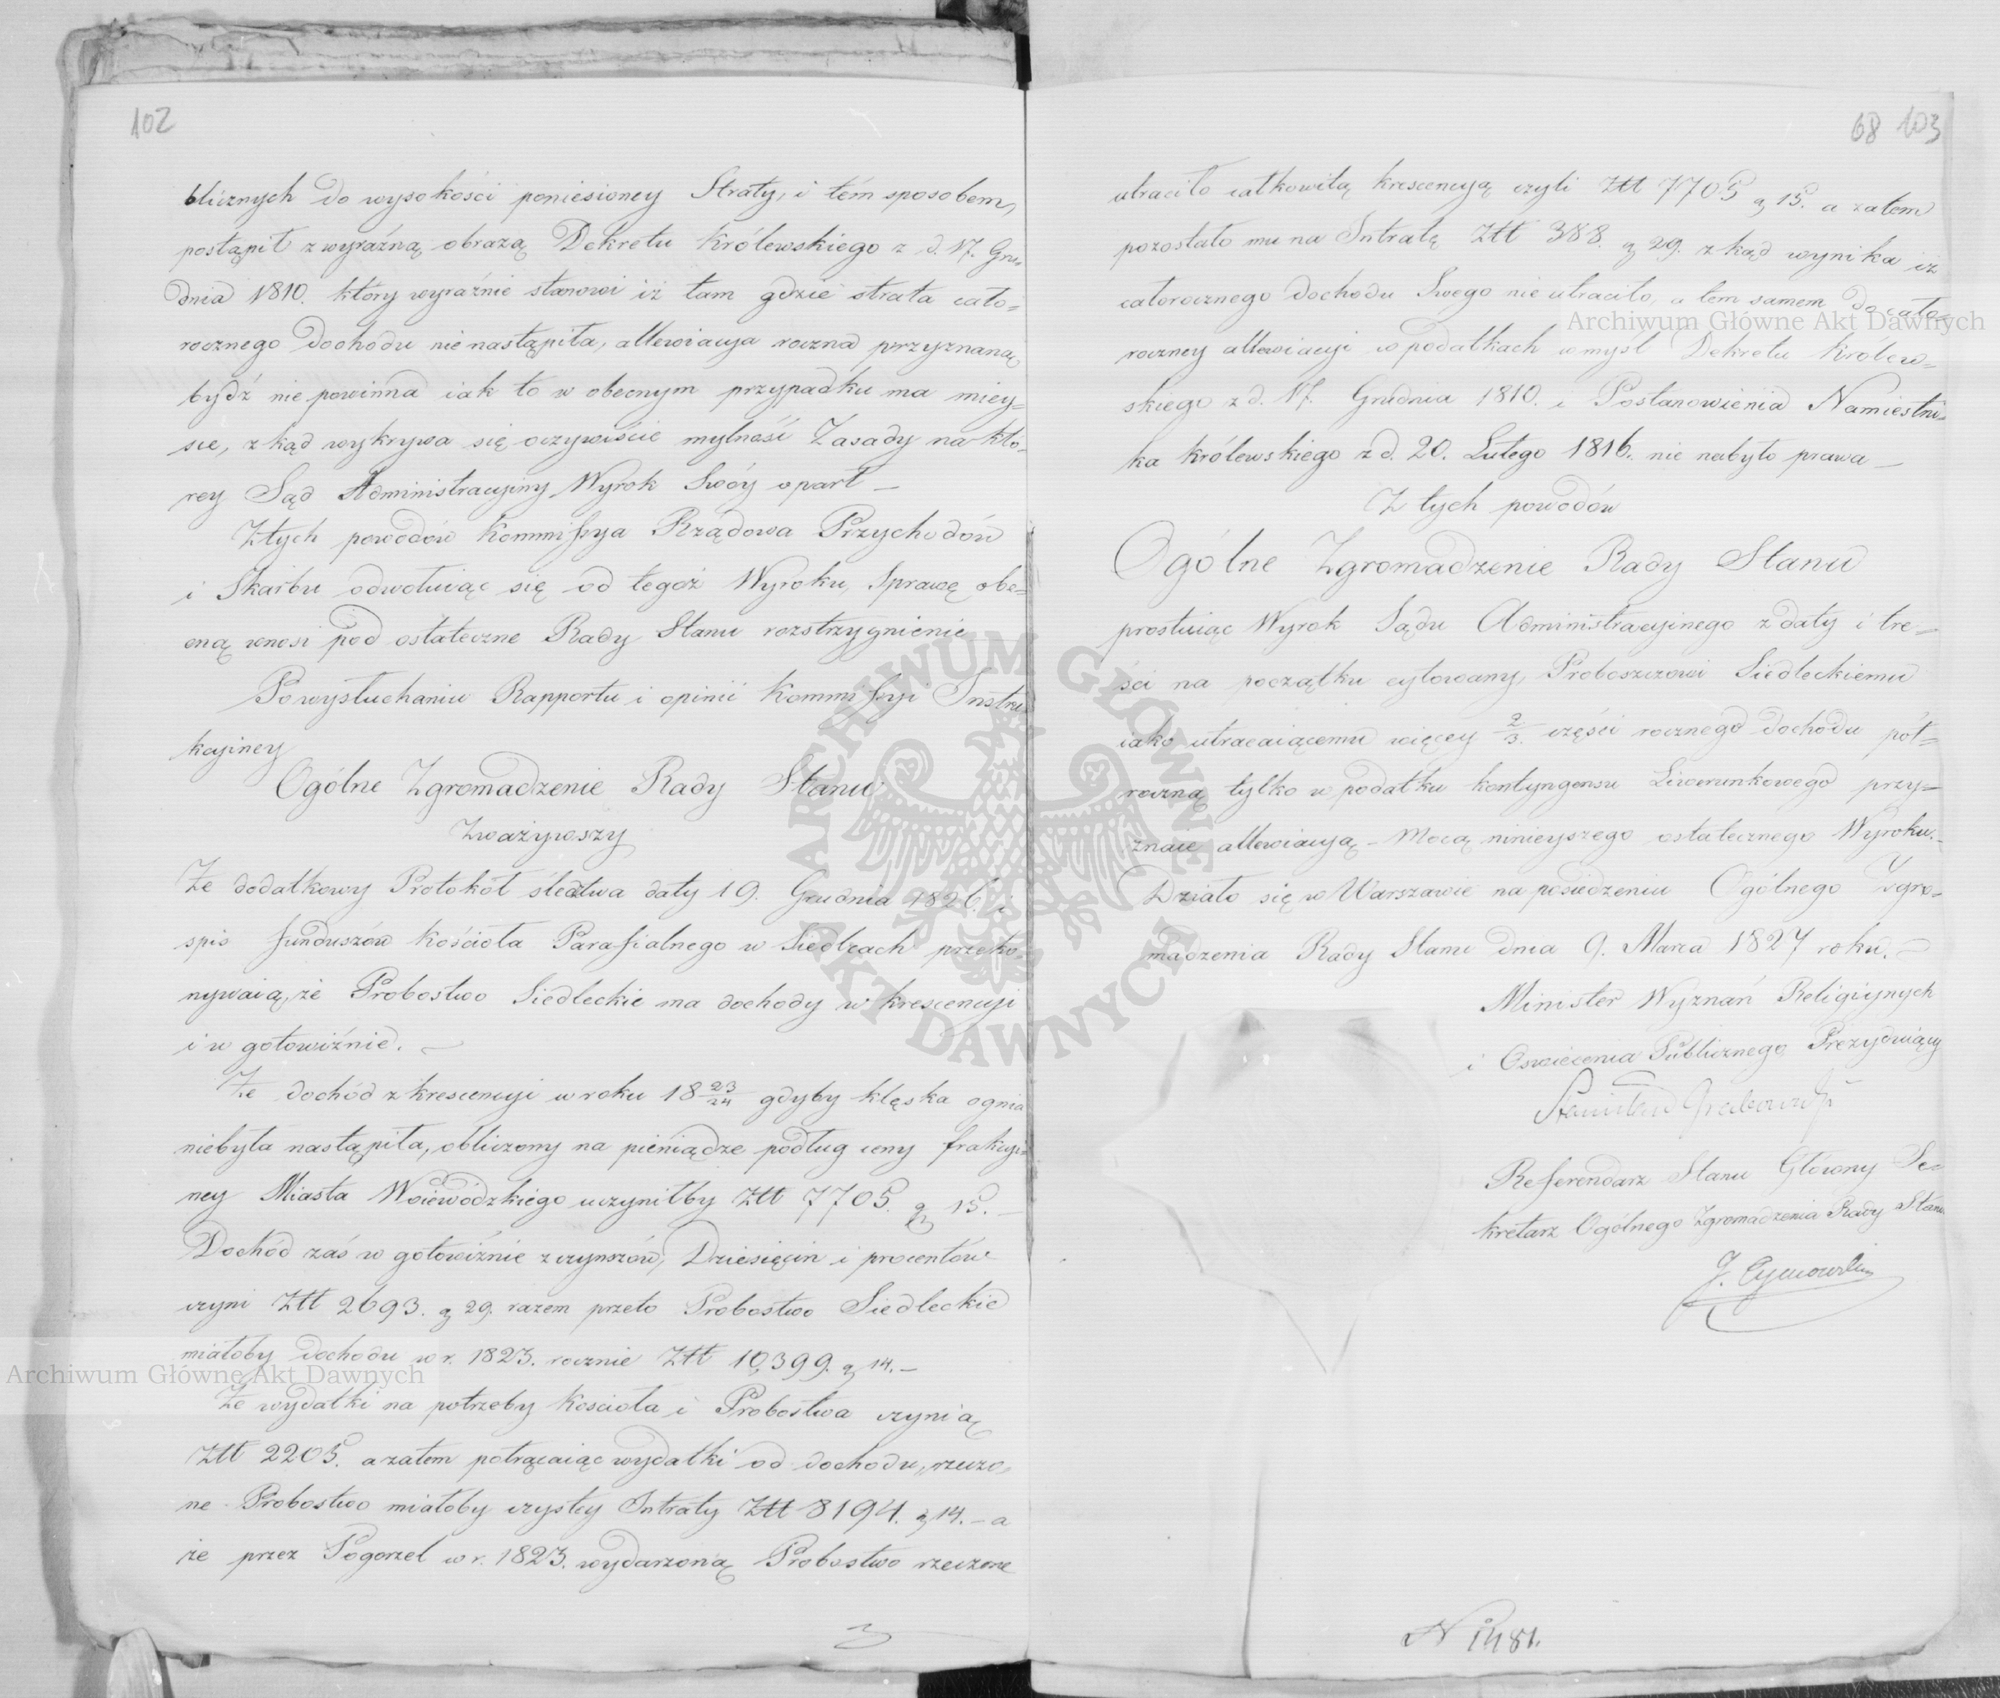 102
blicznych do wysokości poniesioney Straty, i tém sposobem,
postąpił z wyraźną obrazą Dekretu Królewskiego z d. 17. Gru=
dnia 1810. który wyraźnie stanowi iż tam gdzie strata cało=
rocznego dochodu nie nastąpiła, allewiacya roczna przyznaną
bydź nie powinna iak to w obecnym przypadku ma miey=
sce, zkąd wykrywa się oczywiście mylność Zasady na któ=
rey Sąd Administracyiny Wyrok Swóy oparł —
Z tych powodów Kommissya Rządowa Przychodów
i Skarbu odwołuiąc się od tegoż Wyroku, Sprawę obe=
cną wnosi pod ostateczne Rady Stanu rozstrzygnienie
Po wysłuchaniu Rapportu i opinii Kommissyi Instru
kcyiney
Ogólne Zgromadzenie Rady Stanu
Zważywszy
Że dodatkowy Protokół śledztwa daty 19. Grudnia 1826. i
spis funduszów Kościoła Parafialnego w Siedlcach przeko=
nywaią, że Probostwo Siedleckie ma dochody w krescencyi
i w gotowiźnie. —
Że dochód z krescencyi w roku 18 23/24 gdyby klęska ognia
niebyła nastąpiła, obliczony na pieniądze podług ceny frakcyi=
ney Miasta Woiewódzkiego uczyniłby Złł 7705. g 15. —
Dochód zaś w gotowiźnie z czynszów, Dziesięcin i procentów
czyni Złł 2693. g 29. razem przeto Probostwo Siedleckie
miałoby dochodu w r. 1823. rocznie Złł 10,399. g 14. —
Że wydatki na potrzeby Kościoła i Probostwa czynią
Złł 2205. a zatem potrącaiąc wydatki od dochodu, rzeczo=
ne Probostwo miałoby czystey Intraty Złł 8194. g 14. — a
że przez Pogorzel w r. 1823. wydarzoną Probostwo rzeczone
68 103
utraciło całkowitą krescencyą czyli Złł 7705 g 15. a zatem
pozostało mu na Intratę Złł 388. g 29. zkąd wynika iż
całorocznego dochodu Swego nie utraciło, a tem samem do cało=
roczney allewiacyi w podatkach w myśl Dekretu Królew=
skiego z d. 17. Grudnia 1810. i Postanowienia Namiestni=
ka Królewskiego z d. 20. Lutego 1816. nie nabyło prawa —
Z tych powodów
Ogólne Zgromadzenie Rady Stanu
prostuiąc Wyrok Sądu Administracyinego z daty i tre=
ści na początku cytowany, Proboszczowi Siedleckiemu
iako utracaiącemu więcey 2/3. części rocznego dochodu pół=
roczną tylko w podatku kontyngensu Liwerunkowego przy=
znaie allewiacyą — Mocą ninieyszego ostatecznego Wyroku. —
Działo się w Warszawie na posiedzeniu Ogólnego Zgro=
madzenia Rady Stanu dnia 9. Marca 1827 roku. —
Minister Wyznań Religiynych
i Oświecenia Publicznego Prezyduiący
Stanisław Grabowski
Referendarz Stanu Główny Se=
kretarz Ogólnego Zgromadzenia Rady Stanu
J. Tymowski
N 1481.
Archiwum Główne Akt Dawnych
Archiwum Główne Akt Dawnych
ARCHIWUM GŁÓWNE AKT DAWNYCH